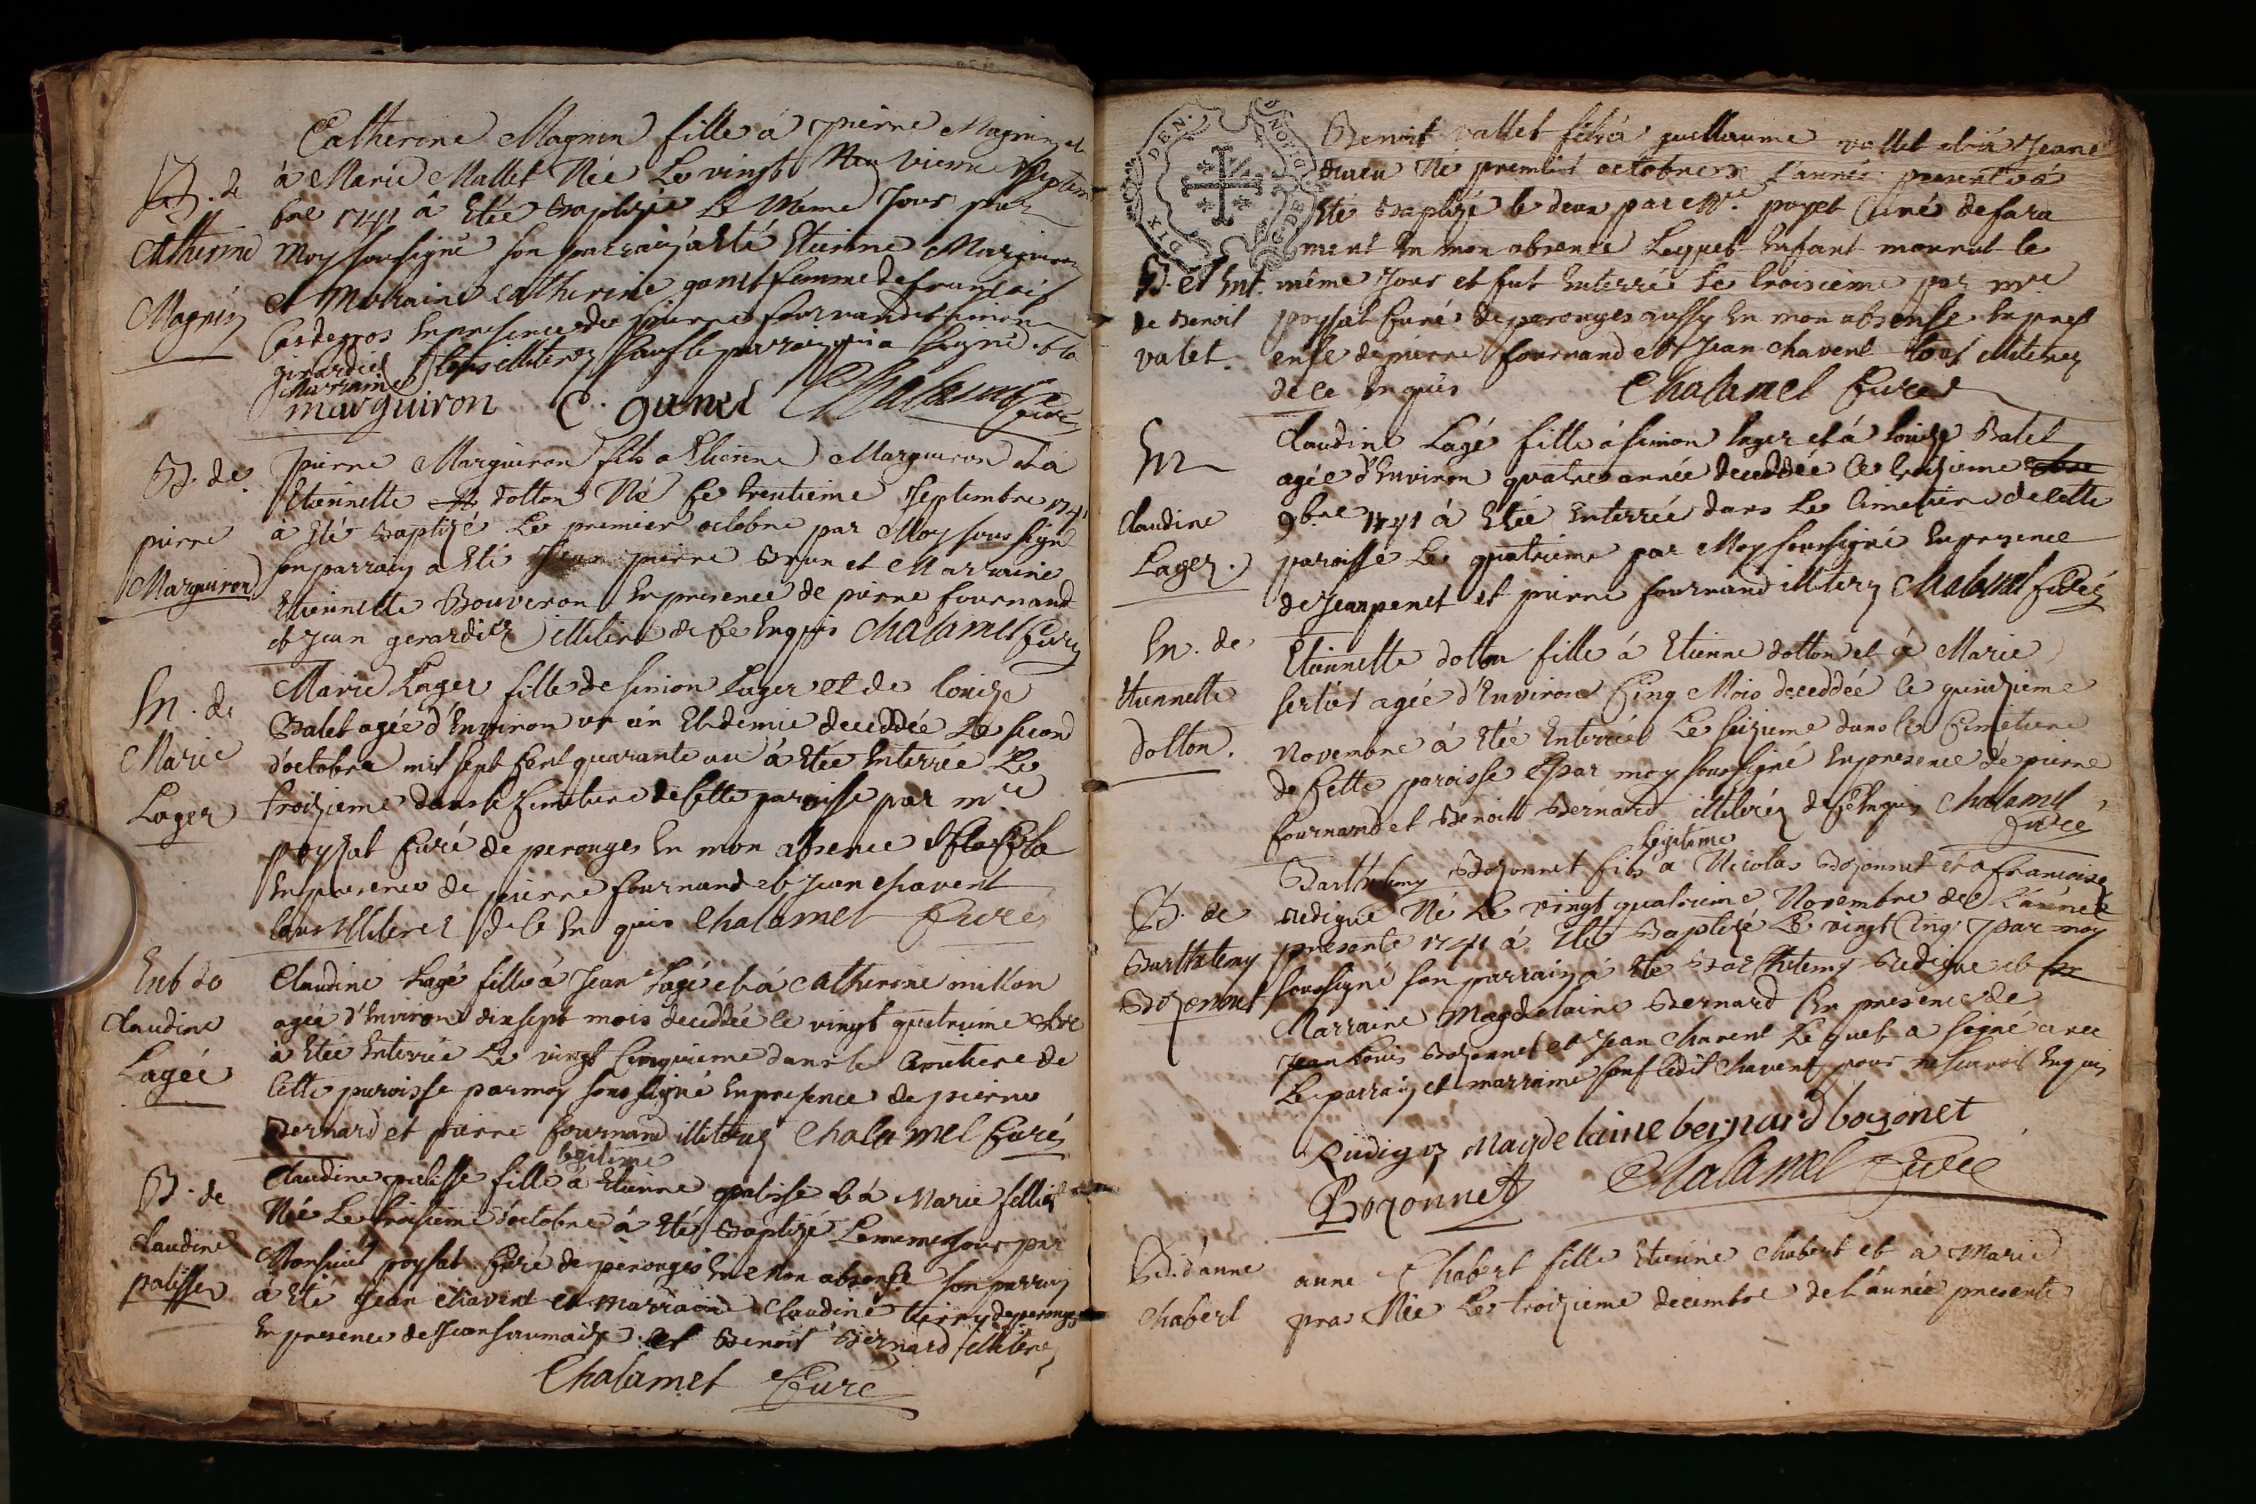 Catherine Magnin fille à pierre Magnin et
B. de
à Marie Mallet Née Le vingt Neuvieme Septem
bre 1741 à Etée Baptizée Le Même Jour par
Catherine
Moy soussigné son parrain a Eté Etienne Marguiron
Magnin
et Marraine catherine ganet femme de françois
Cardegros En presence de pierre fournand et simon
girardier tous illiterez sauf le parrain qui a signé et la
marraine
marguiron C. ganet Chalamel Curé
B. de
pierre Marguiron fils a Etienne Marguiron et a
Etiennette dolton Né le trentieme Septembre 1741
pierre
à Eté Baptizé Le premier octobre par Moy soussigné
Marguiron
son parrain a Eté pierre Brun et Marraine
Etiennette Bouveron En presence de pierre fournand
et Jean gerardier illiteré de ce Enquis Chalamel Curé
En. de
Marie Lager fille de simon Lager et de louize
Balet agée d'Environ un an Et demie deceddée Le second
Marie
d'octobre mil sept Cent quarante un à Etée Enterrée Le
Lager
troizieme dans le Cimetiere de Cette paroisse par mre
poysat Curé de perouges En mon absence
En presence de pierre fournand et Jean chavent
tous Illiterez de ce En quis Chalamel Curé
Ent de
Claudine Lagé fille à Jean Lagé et à Catherine millon
Claudine
agée d'Environ dix sept mois deceddée le vingt quatrieme 8bre
Lagée
à Etée Enterrée Le vingt Cinquieme dans le Cimetiere de
Cette paroisse par moy soussigné En presence de pierre
Bernard et pierre fournand illiterez Chalamel Curé
legitime
B. de
Claudine palisse fille à Etienne palisse et à Marie
Née Le troisieme d'octobre à Eté Baptizé Le meme Jour par
Claudine
Monsieur poysat Curé de perouges En Mon absence son parrain
palisse
à Eté Jean chavent et marraine Claudine de perouges
En presence de Jean et Benoit Bernard illiterez
Chalamel Curé
Benoit vallet fils à guillaume vallet et à Jeane
Né premier octobre de L'année presente à
Eté Baptizé le deux par Mre poyet Curé de fara
ment En mon absence Lequel Enfant mourut le
B. et Ent.
même Jour et fut Enterré Le troisieme par mre
de Benoit
poysat Curé de perouges aussy En mon absense En pres
valet.
ense de pierre fournand et Jean chavent tous illiterez
de ce Enquis Chalamel Curé
En
Claudine Lagé fille à simon Lager et à louize Balet
agée d'Environ quatre année deceddée Le troizieme
Claudine
9bre 1741 à Etée Enterrée dans Le Cimetiere de Cette
Lager.
paroisse Le quatrieme par Moy soussigné En presence
de Jean penet et pierre fournand illiterez Chalamel Curé
En. de
Etiennette dolton fille á Etienne dolton et á Marie
Etiennette
agée d'Environ Cinq Mois deceddée le quinzieme
dolton.
Novembre à Etée Enterrée Le seizieme dans le Cimetiere
de Cette paroisse par moy soussigné En presence de pierre
fournand et Benoit Bernard illiterez de ce Enquis Chalamel
Curé
legitime
Barthelemy Bozonnet fils a Nicolas Bozonnet et a francoise
B. de
Redigue Né Le vingt quatrieme Novembre de L'année
Barthelemy
presante 1741 à Eté Baptizé Le vingt Cinq par moy
Bozonnet
soussigné son parrain á Eté Barthelemy Redigue et
Marraine Magdelaine Bernard En presence de
Jean Louis Bozonnet et Jean Chavent Lequel a signé avec
Le parrain et marraine sauf ledit Chavent pour ne scavoir Enquis
Rudigoz Magdelaine bernard bozonet
Bozonnet Chalamel Curé
B. d'anne
anne Chabert fille Etienne Chabert et à Marie
Chabert
pras Née Le troizieme decembre de L'année presente